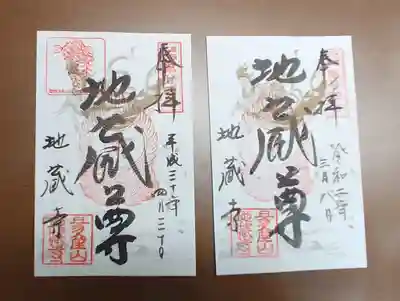 奉拝
平成三十年
地蔵尊
地蔵寺
奉拝
令和二年
三月八日
地蔵尊
地蔵寺